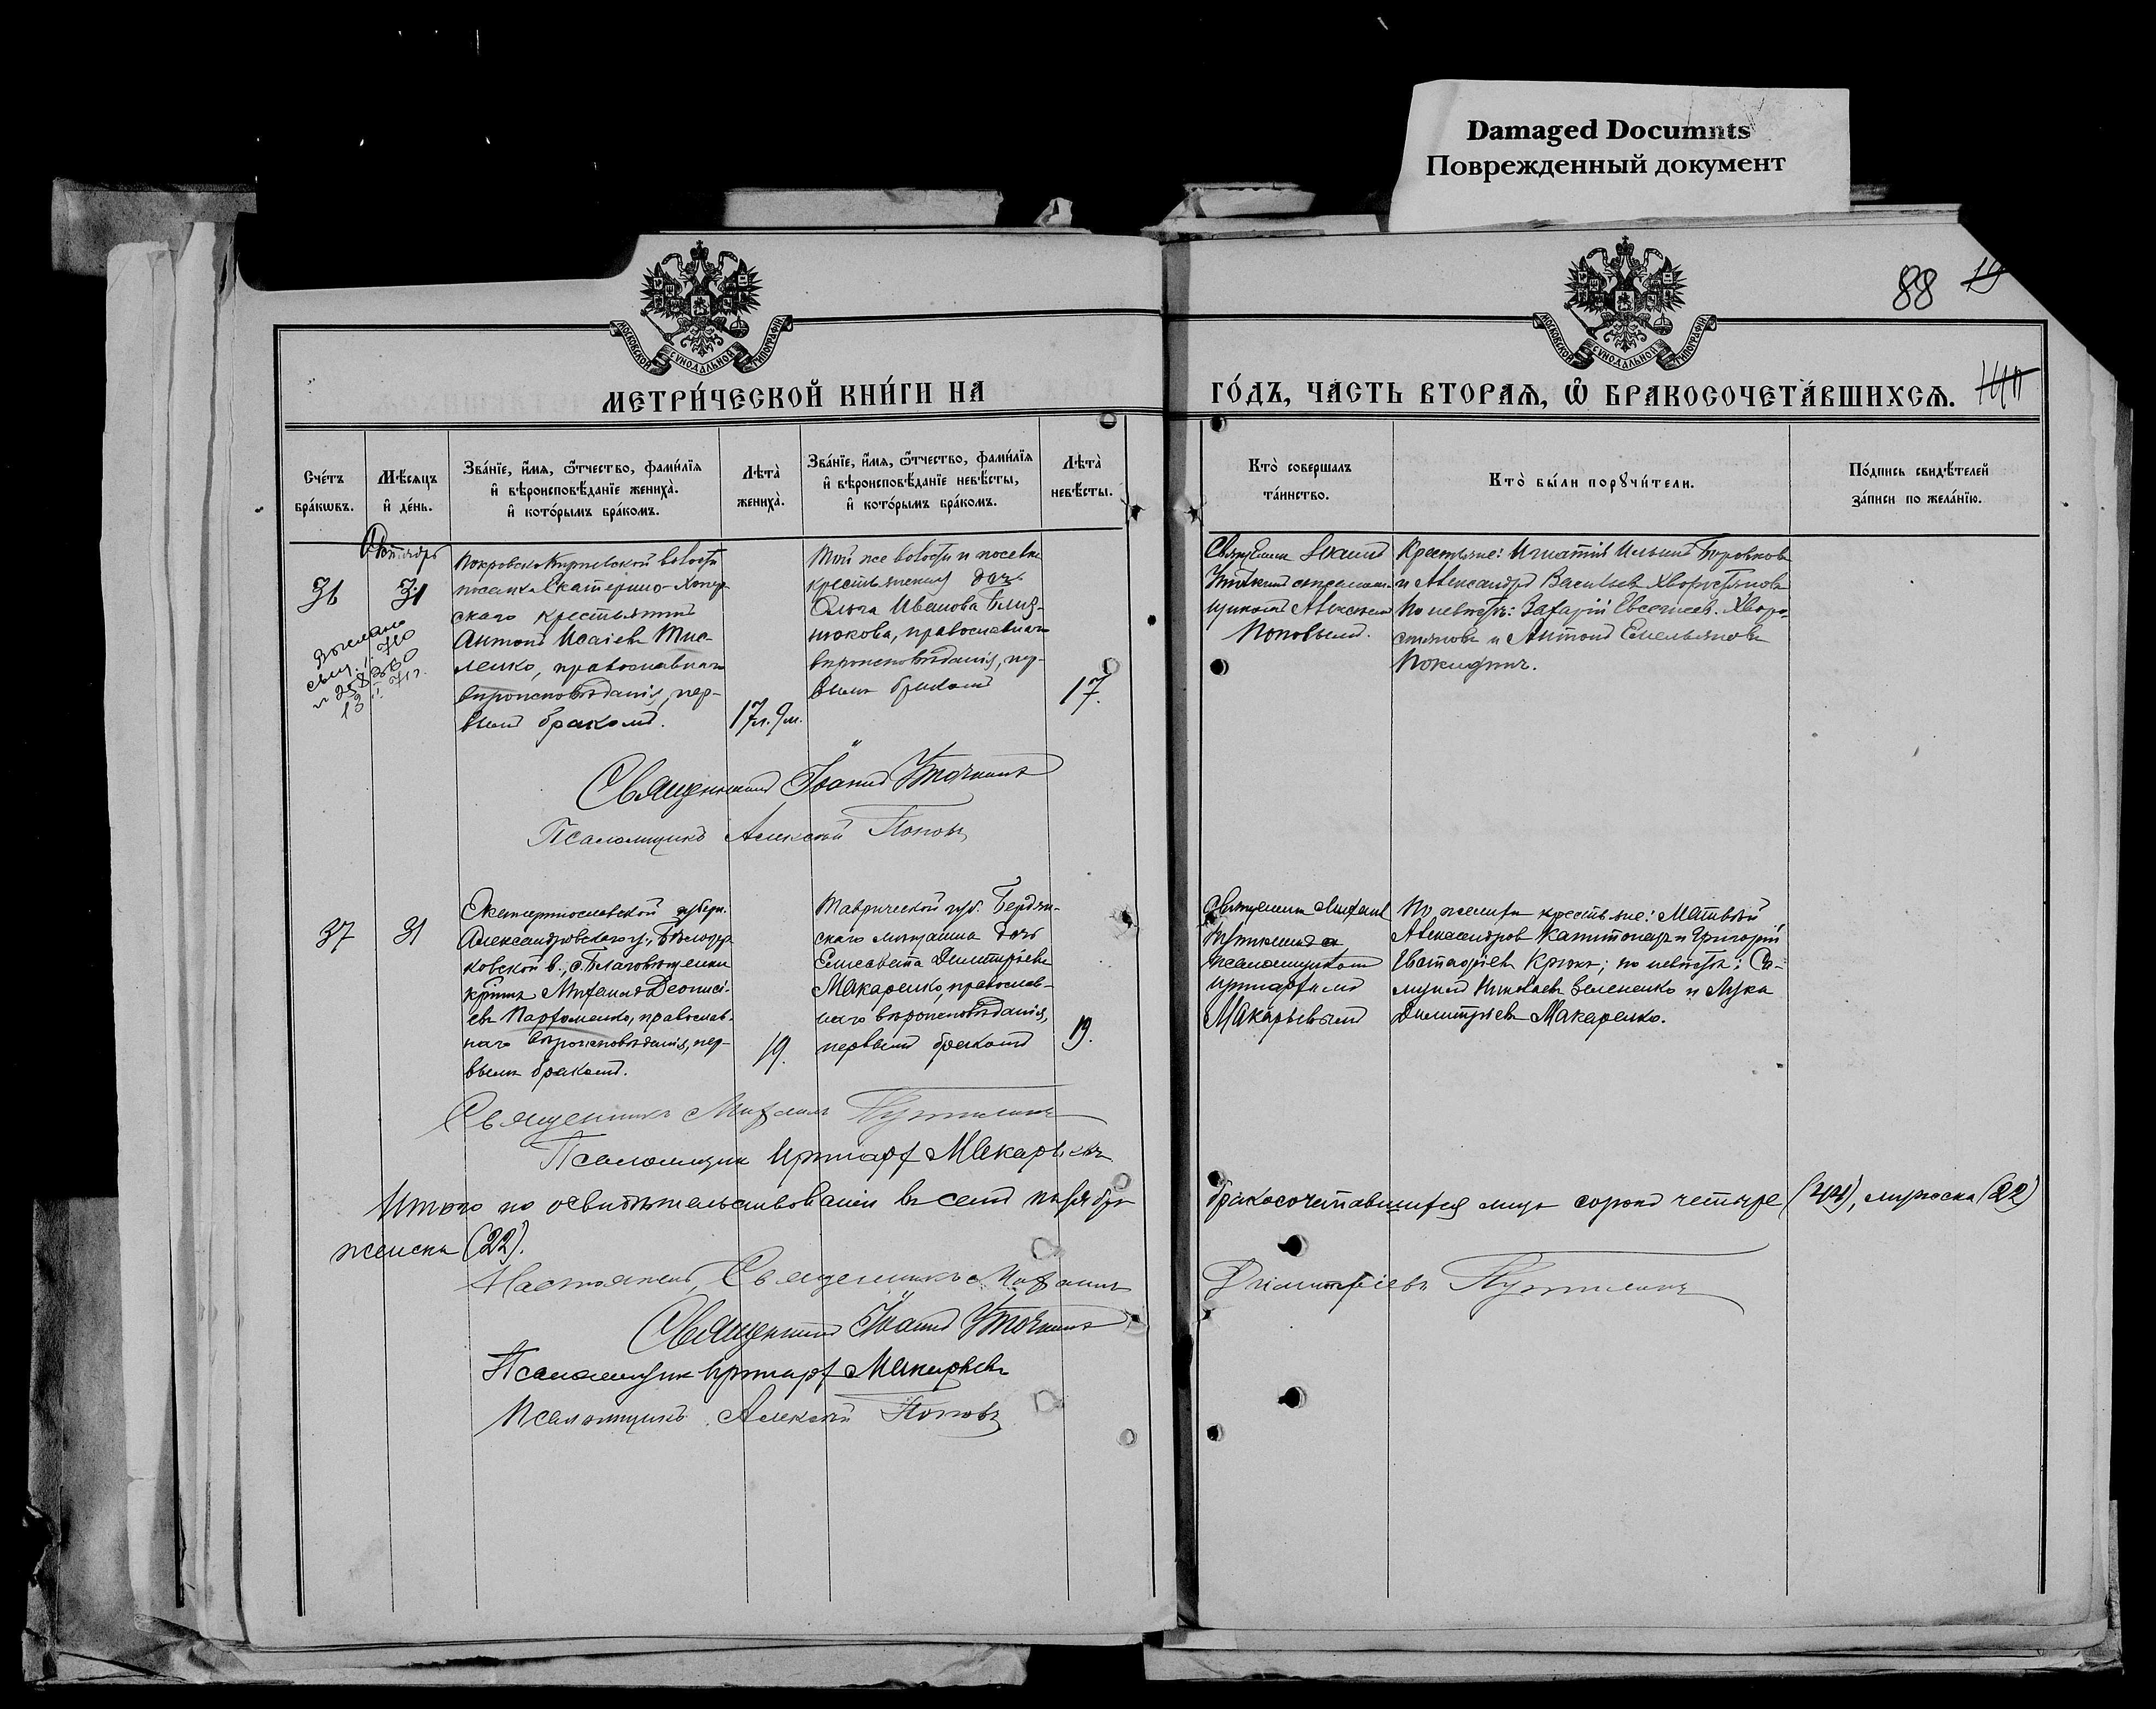 Damaged Documnts
Поврежденный документ
88 19
МОСКОВСКОЙ СѴНОДАЛЬНОЙ ТИПОГРАФІИ
МОСКОВСКОЙ СѴНОДАЛЬНОЙ ТИПОГРАФІИ
МЕТРИ́ЧЕСКОЙ КНИ́ГИ НА
ГО́ДЪ, ЧА́СТЬ ВТОРАѦ, Ѡ҆ БРАКОСОЧЕТА́ВШИХСѦ.
Сче́тъ бра́кѡвъ.
Мѣ́сяцъ и҆ де́нь.
Зва́нїе, и҆́мя, ѻ҆́тчество, фами́лїя и҆ вѣроисповѣ́данїе жениха̀. и҆ кото́рымъ бра́комъ.
Лѣта̀ жениха̀.
Зва́нїе, и҆́мя, ѻ҆́тчество, фами́лїя и҆ вѣроисповѣ́данїе невѣ́сты, и҆ кото́рымъ бра́комъ.
Лѣта̀ невѣ́сты.
Кто̀ соверша́лъ та́инство.
Кто̀ бы́ли порꙋчи́тели.
По́дпись свидѣ́телей за́писи по жела́нїю.
Октябрь
36
31
Покровско-Киреевской волости
поселка Екатерино-Хопер
скаго крестьянинъ
Антонъ Исаіевъ Тис-
ленко, православнаго
вѣроисповѣданія, пер-
вымъ бракомъ.
17л. 9м.
Той же волости и поселка
крестьянина дочь
Ольга Иванова Близ-
нюкова, православнаго
вѣроисповѣданія, пер-
вымъ бракомъ
17.
Выслано
Священник Іоаннъ
Уточкинъ съ псалом-
щикомъ Алексѣем
Поповымъ.
Крестьяне: Игнатій Ильинъ Боровковъ
и Александръ Васильевъ Хворостянова
По невѣстѣ: Захарій Евсегнеев. Хворо-
стяновъ и Антонъ Емельяновъ
Священникъ Іоаннъ Уточкинъ
Псаломщикъ Алексѣй Поповъ
37
31
Екатеринославской губерн.
Александровскаго у., Бѣлоцер
ковской в., с. Благовѣщенки
кр-нинъ Михаилъ Деониси-
евъ Парфоменко, православ-
наго вѣроисповѣданія, пер-
вымъ бракомъ.
19.
Таврической губ. Бердян-
скаго мѣщанина дочь
Елисавета Димитріева
Макаренко, православ-
наго вѣроисповѣданія,
первымъ бракомъ
19.
Священник Михаил
Путилинъ с
псаломщикомъ
Иринархомъ
Макарьевымъ
По женихѣ крестьяне: Матвѣй
Александров Капитонецъ и Григорій
Евстафіевъ Крюкъ; по невѣстѣ: Са-
муилъ Николаевъ Зелененко и Лука
Димитріевъ Макаренко.
Священникъ Михаилъ Путилинъ
Псаломщик Иринарх Макарьевъ
Итого по освидѣтельствованіи въ семъ ноября бра
бракосочетавшихся лицъ сорокъ четыре (44), мужеска (22)
женска (22).
Настоятель, Священникъ Михаилъ
Димитріевъ Путилинъ
Священникъ Іоаннъ Уточкинъ
Псаломщик Иринарх Макарьевъ
Псаломщикъ Алексѣй Поповъ